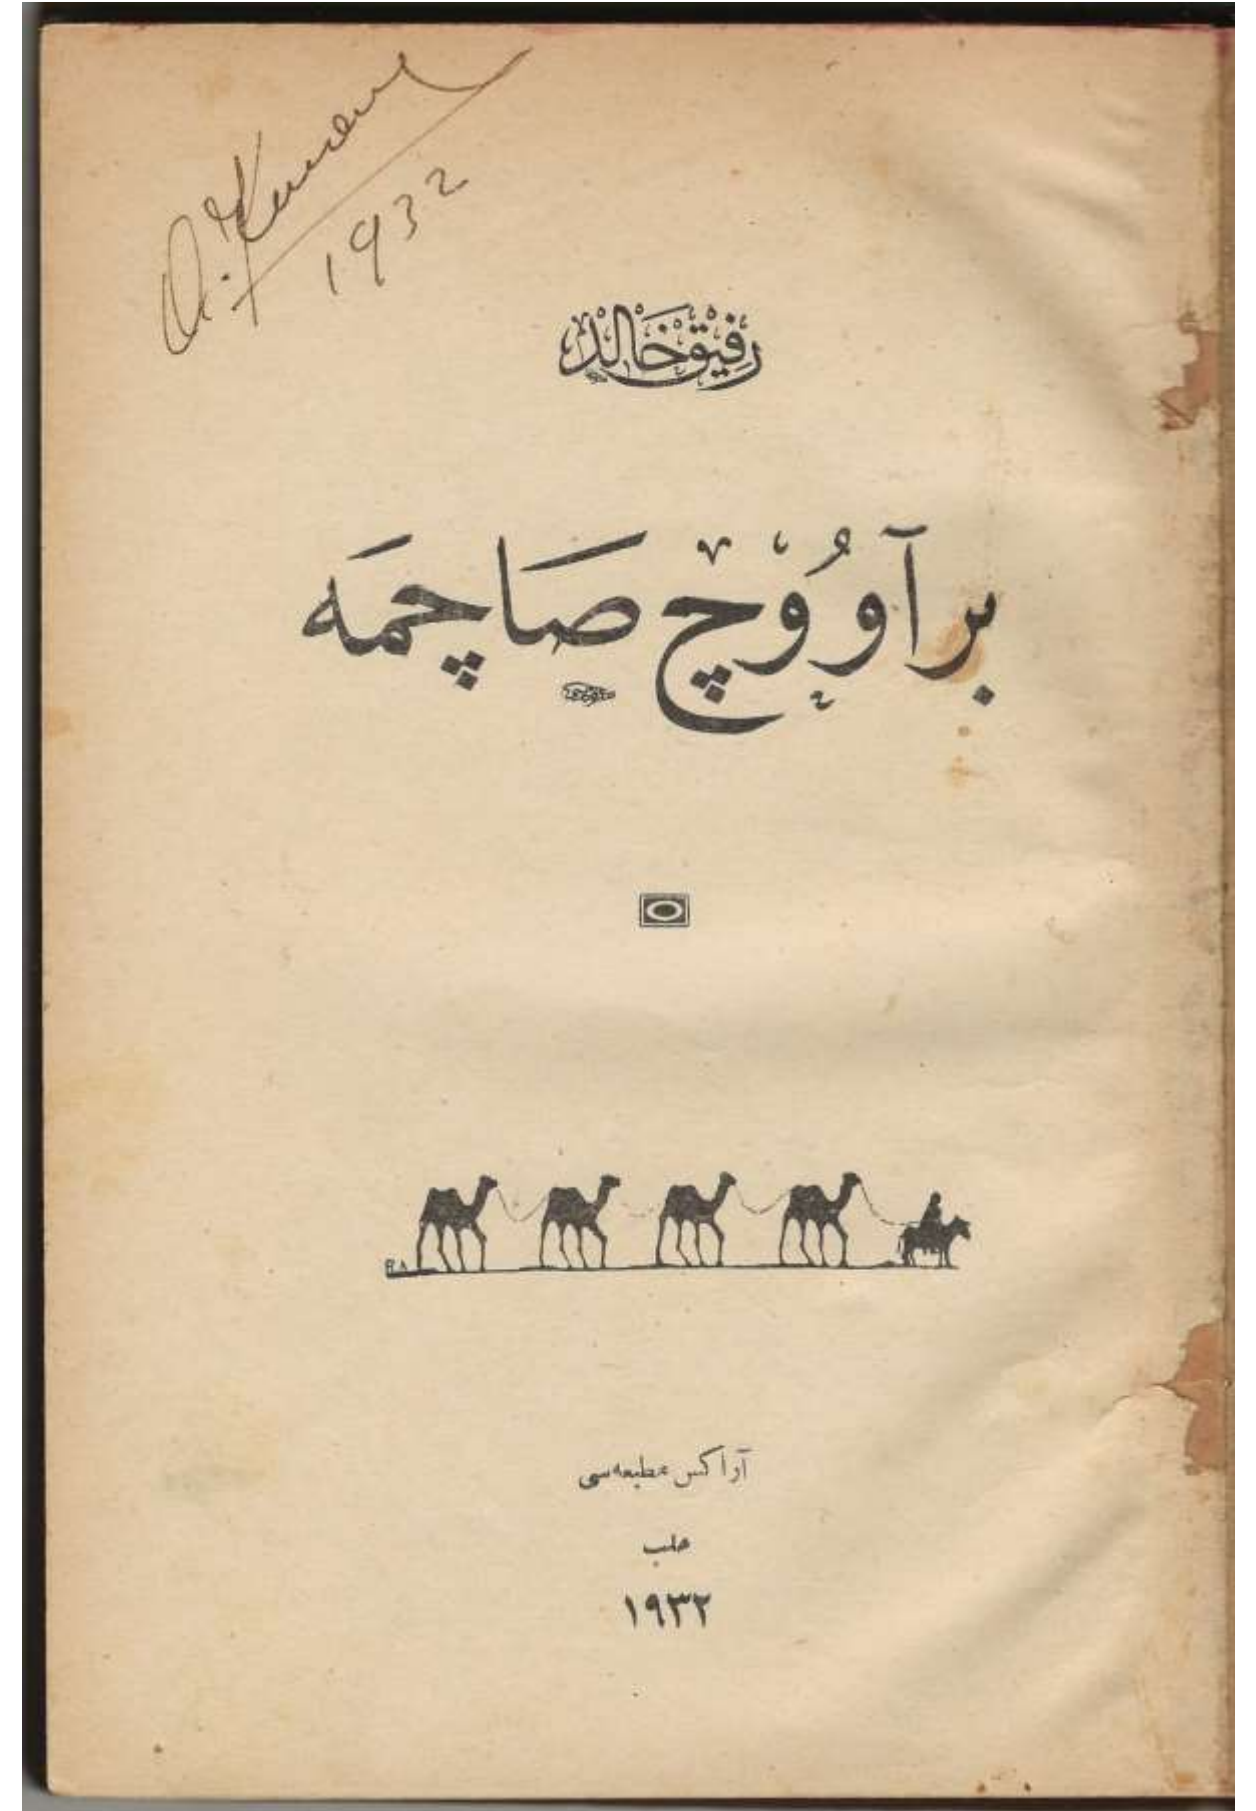 1932
رفيق خالد
بر آووُچ صاچمه
آراكس مطبعه‌سی
حلب
١٩٣٢